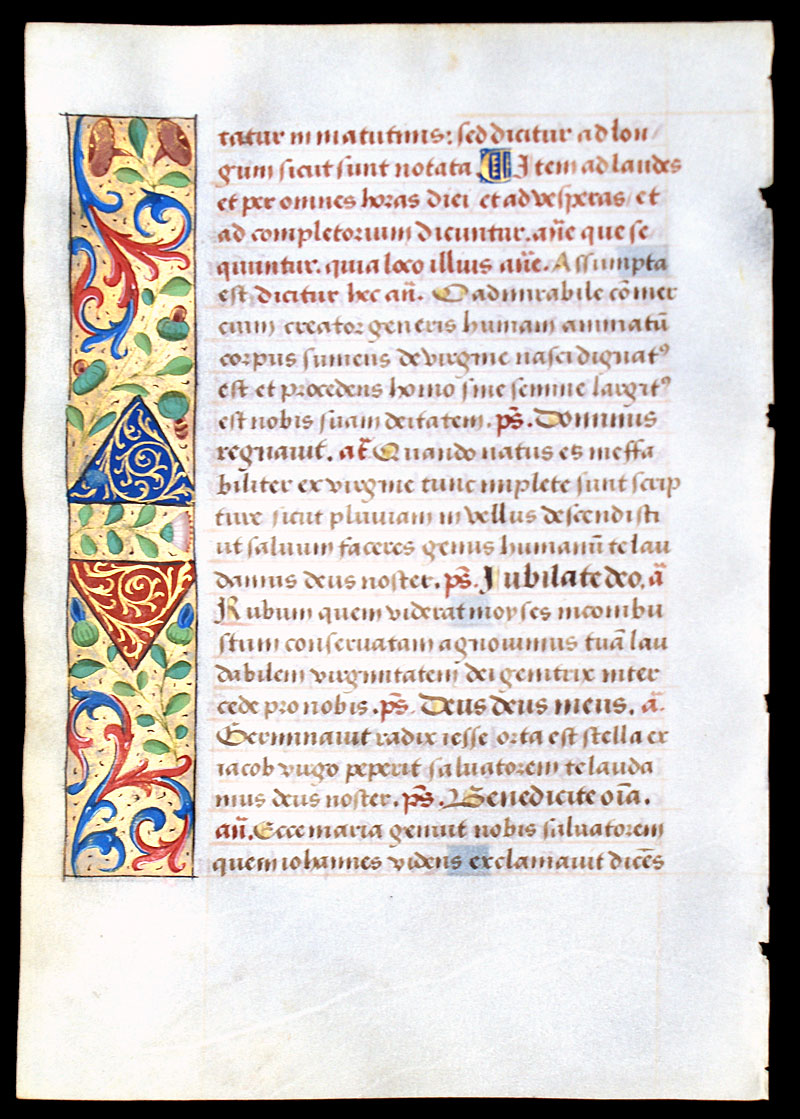 tatur in matutinis: sed dicitur ad lon/
gum sicut sunt notata. Item ad laudes
et per omnes horas diei et ad vesperas/ et
ad completorium dicuntur. añe que se
quuntur. quia loco illius añe. Assumpta
est dicitur hec añ. O admirabile cõmer
cium creator generis humani animatũ
corpus sumens de virgine nasci dignatꝰ
est et procedens homo sine semine largitꝰ
est nobis suam deitatem. p̃s. Dominus
regnavit. añ Quando natus es ineffa
biliter ex virgine tunc implete sunt scrip
ture sicut pluviam in vellus descendisti
ut salvum faceres genus humanũ te lau
damus deus noster. p̃s. Jubilate deo. ã
Rubum quem viderat moyses incombu
stum conservatam agnovimus tuã lau
dabilem virginitatem dei genitrix inter
cede pro nobis. p̃s. Deus deus meus. ã.
Germinavit radix iesse orta est stella ex
iacob virgo peperit salvatorem te lauda
mus deus noster. p̃s. Benedicite oĩa.
añ. Ecce maria genuit nobis salvatorem
quem iohannes videns exclamavit dicẽs